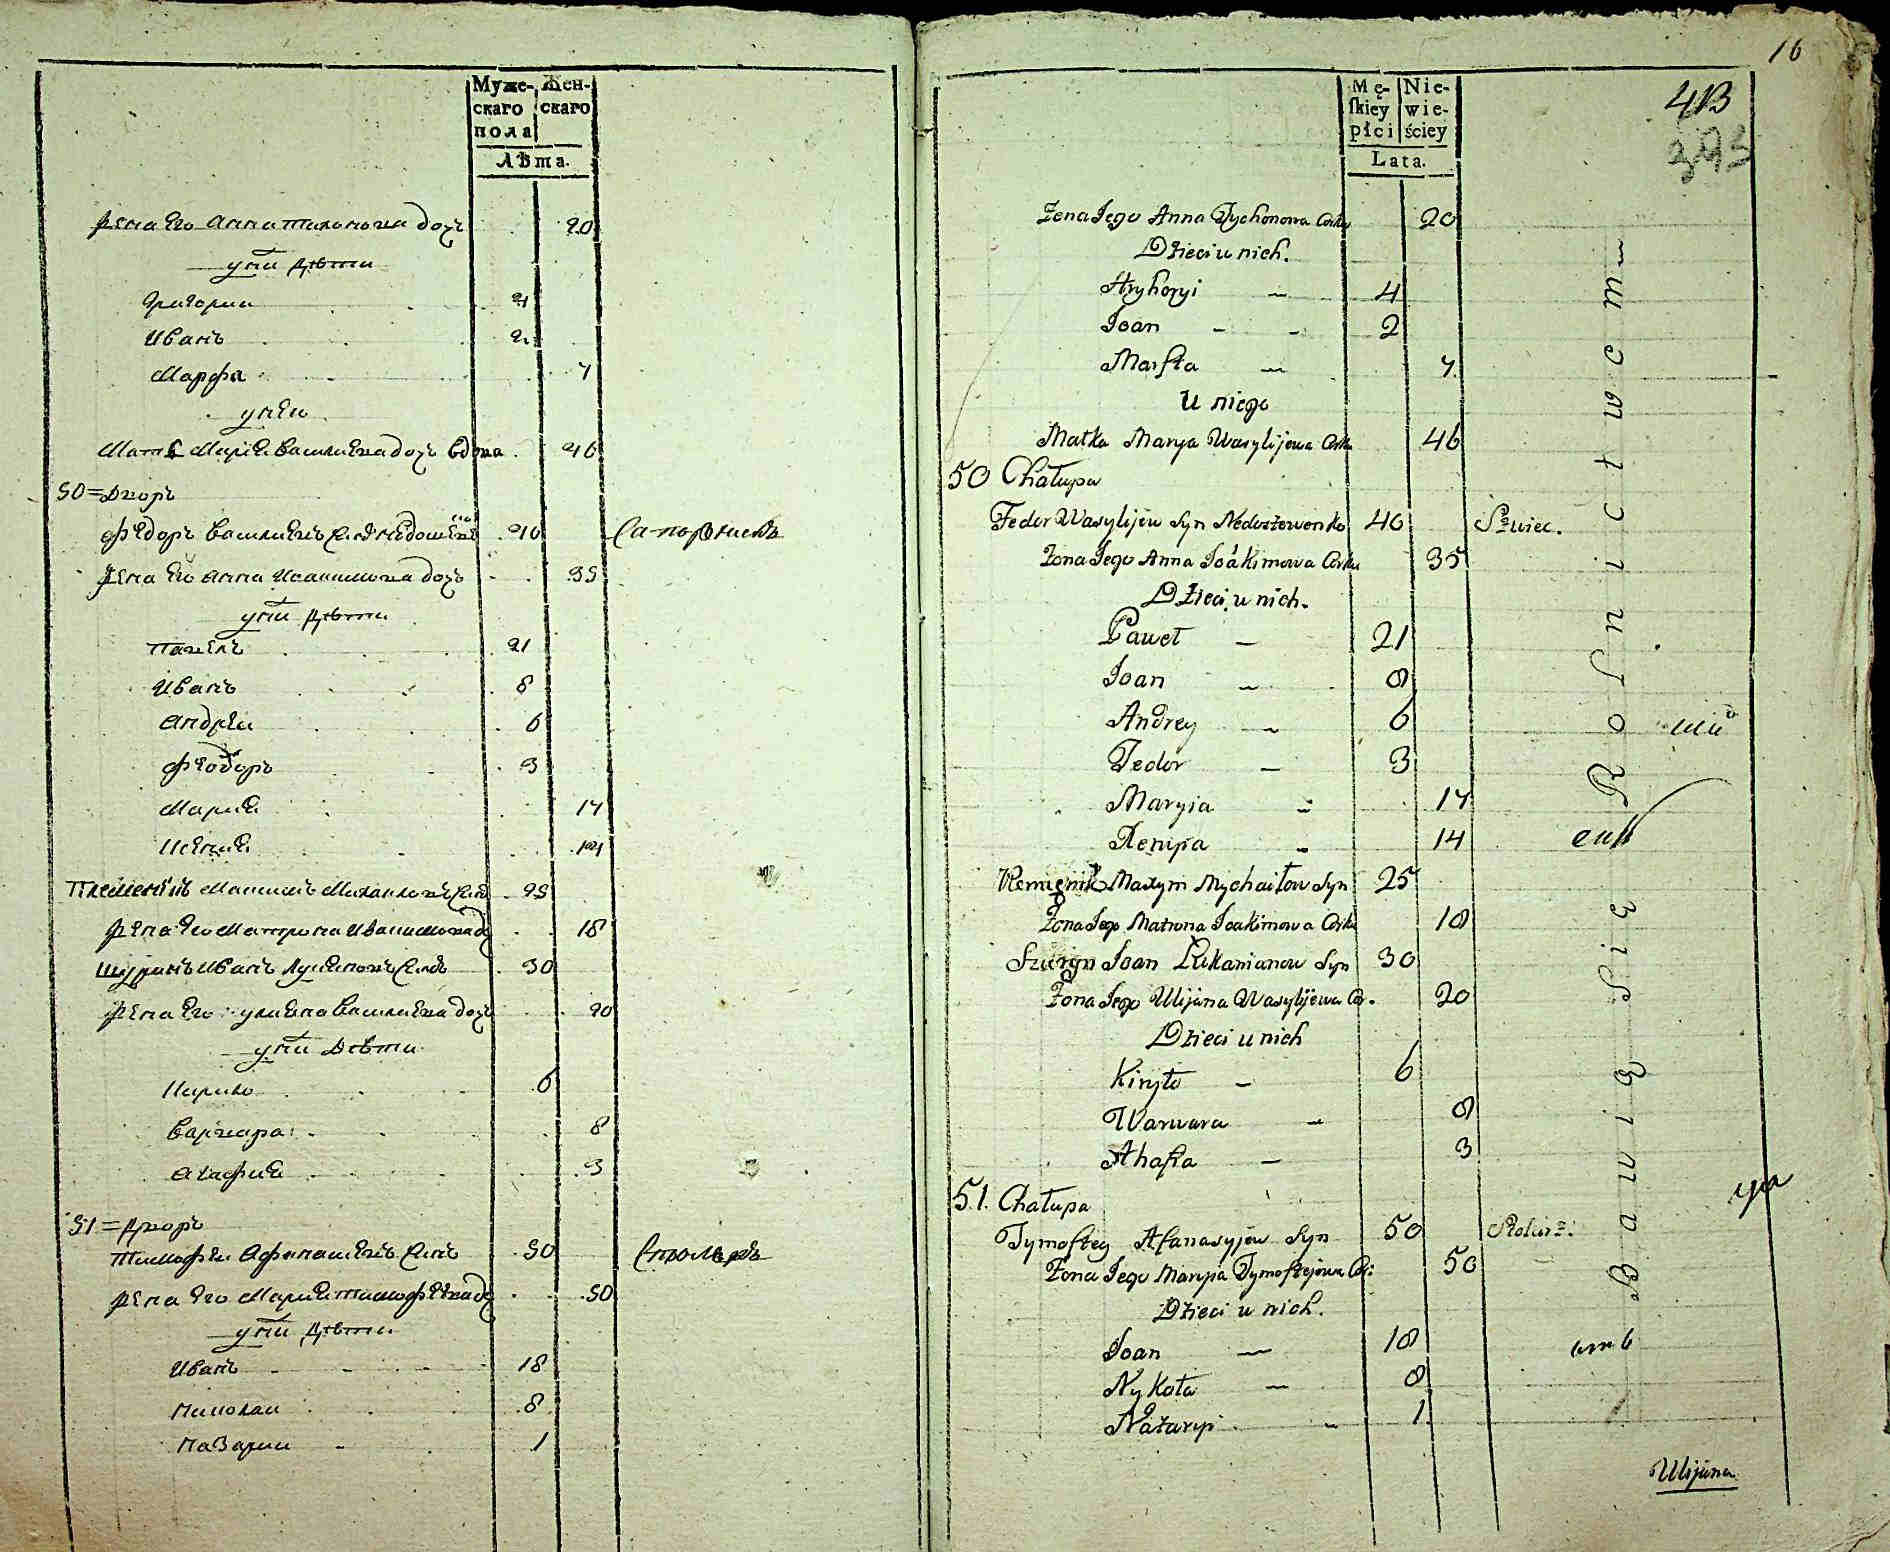 Муже-
скаго
пола
Жен-
скаго
Лѣта.
жена его Анна тихонова дочь 20
у нихъ дѣти
Григории 4
Иванъ 2
Марфа 7
у него
Мать Мария Василиева дочь вдова 46
50 = Дворъ
Федоръ Василиевъ сынъ 40 Сапожникъ
жена его Анна Иоакимова дочь 35
у нихъ дѣти
Павелъ 21
Иванъ 8
Андреи 6
Феодоръ 3
Мария 17
Ксения 14
Племеникъ Максимъ Михаиловъ сынъ 25
жена его Матрона Иоакимова д 18
Шуринъ Иванъ Лукиановъ сынъ 30
жена его улиана Василиева дочь 20
у нихъ Дѣти
Кирило 6
Варвара 8
Агафия 3
51 = Дворъ
Тимофеи Афанасиевъ сынъ 50 Столяръ
жена его Мария тимофеева д 50
у нихъ дѣти
Иванъ 18
Николаи 8
Назарии 1
16
Mę-
skiey
płci
Nie-
wie-
ściey
Lata.
413
Żona Jego Anna Tychonowa Corka 20
Dzieci u nich.
Hryhoryi 4
Joan 2
Marfta 7
U niego
Matka Marya Wasylijewa Corka 46
50 Chałupa
Fedor Wasylijew Syn Nedoszewenko 40 Szwiec.
Żona Jego Anna Joakimowa Corka 35
Dzieci u nich.
Paweł 21
Joan 8
Andrey 6
Fedor 3
Maryia 17
Xenija 14
Plemięnik Maxym Mychaiłow Syn 25
Żona Jego Matrona Joakimowa Corka 18
Szuryn Joan Łukanianow Syn 30
Żona Jego Ulijana Wasylijewa Cor. 20
Dzieci u nich
Kiryło 6
Warwara 8
Ahafia 3
51. Chałupa
Tymoftey Afanasyjew Syn 50 Stolarz.
Żona Jego Maryia Tymoftejowa Cor: 50
Dzieci u nich.
Joan 18
Nykoła 8
Nazaryi 1
Ulijana